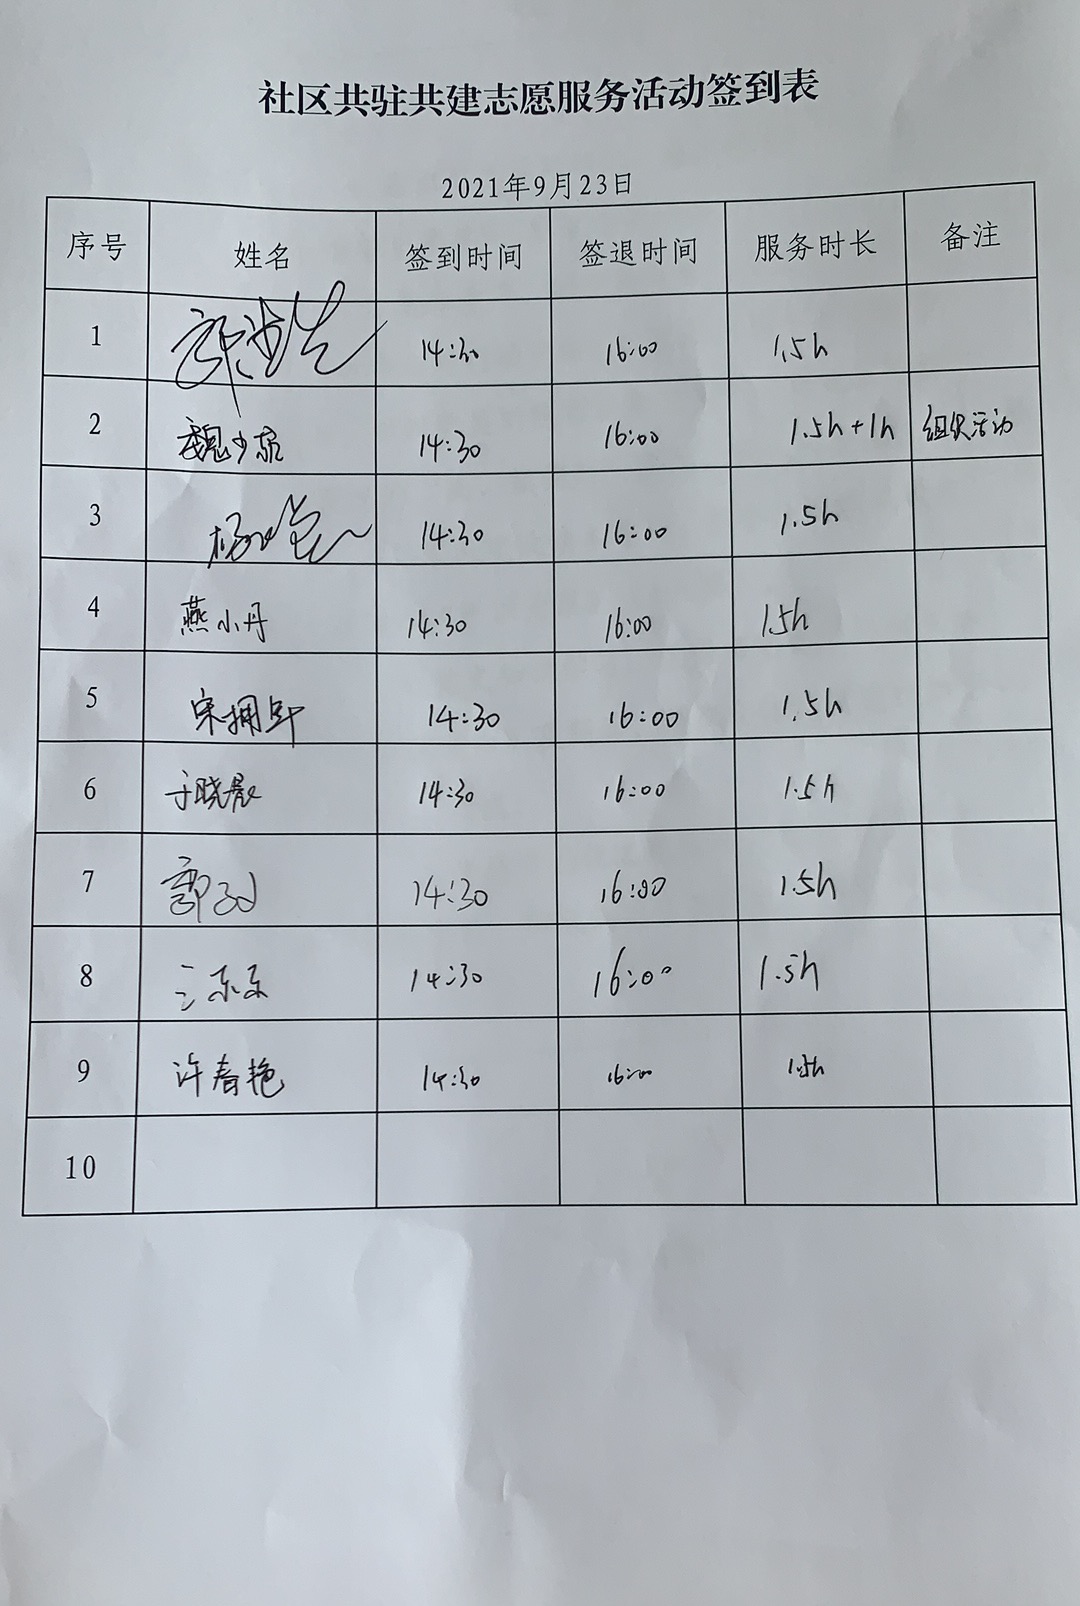 社区共驻共建志愿服务活动签到表
2021年9月23日
序号 姓名 签到时间 签退时间 服务时长 备注
1 14:30 16:00 1.5h
2 魏少 14:30 16:00 1.5h+1h 组织活动
3 杨 14:30 16:00 1.5h
4 燕小丹 14:30 16:00 1.5h
5 宋拥军 14:30 16:00 1.5h
6 于晓晨 14:30 16:00 1.5h
7 郭 14:30 16:00 1.5h
8 王东东 14:30 16:00 1.5h
9 许春艳 14:30 16:00 1.5h
10